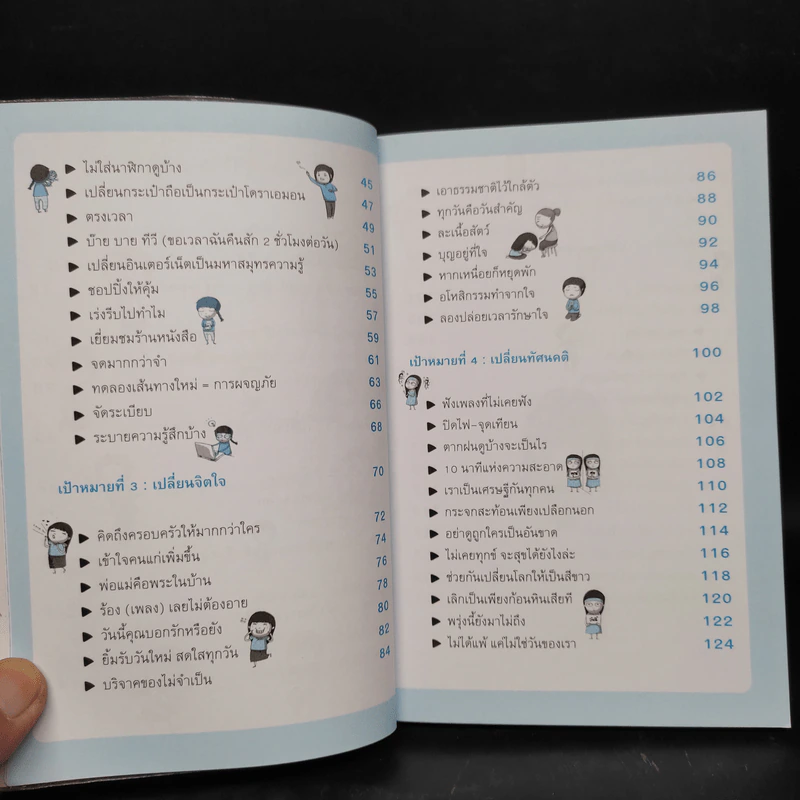 ไม่ใส่นาฬิกาดูบ้าง 45
เปลี่ยนกระเป๋าถือเป็นกระเป๋าโดราเอมอน 47
ตรงเวลา 49
บ๊าย บาย ทีวี (ขอเวลาฉันคืนสัก 2 ชั่วโมงต่อวัน) 51
เปลี่ยนอินเตอร์เน็ตเป็นมหาสมุทรความรู้ 53
ชอปปิ้งให้คุ้ม 55
เร่งรีบไปทำไม 57
เยี่ยมชมร้านหนังสือ 59
จดมากกว่าจำ 61
ทดลองเส้นทางใหม่ = การผจญภัย 63
จัดระเบียบ 66
ระบายความรู้สึกบ้าง 68
เป้าหมายที่ 3 : เปลี่ยนจิตใจ 70
คิดถึงครอบครัวให้มากกว่าใคร 72
เข้าใจคนแก่เพิ่มขึ้น 74
พ่อแม่คือพระในบ้าน 76
ร้อง (เพลง) เลยไม่ต้องอาย 78
วันนี้คุณบอกรักหรือยัง 80
ยิ้มรับวันใหม่ สดใสทุกวัน 82
บริจาคของไม่จำเป็น 84
เอาธรรมชาติไว้ใกล้ตัว 86
ทุกวันคือวันสำคัญ 88
ละเนื้อสัตว์ 90
บุญอยู่ที่ใจ 92
หากเหนื่อยก็หยุดพัก 94
อโหสิกรรมทำจากใจ 96
ลองปล่อยเวลารักษาใจ 98
เป้าหมายที่ 4 : เปลี่ยนทัศนคติ 100
ฟังเพลงที่ไม่เคยฟัง 102
ปิดไฟ-จุดเทียน 104
ตากฝนดูบ้างจะเป็นไร 106
10 นาทีแห่งความสะอาด 108
เราเป็นเศรษฐีกันทุกคน 110
กระจกสะท้อนเพียงเปลือกนอก 112
อย่าดูถูกใครเป็นอันขาด 114
ไม่เคยทุกข์ จะสุขได้ยังไงล่ะ 116
ช่วยกันเปลี่ยนโลกให้เป็นสีขาว 118
เลิกเป็นเพียงก้อนหินเสียที 120
พรุ่งนี้ยังมาไม่ถึง 122
ไม่ได้แพ้ แค่ไม่ใช่วันของเรา 124